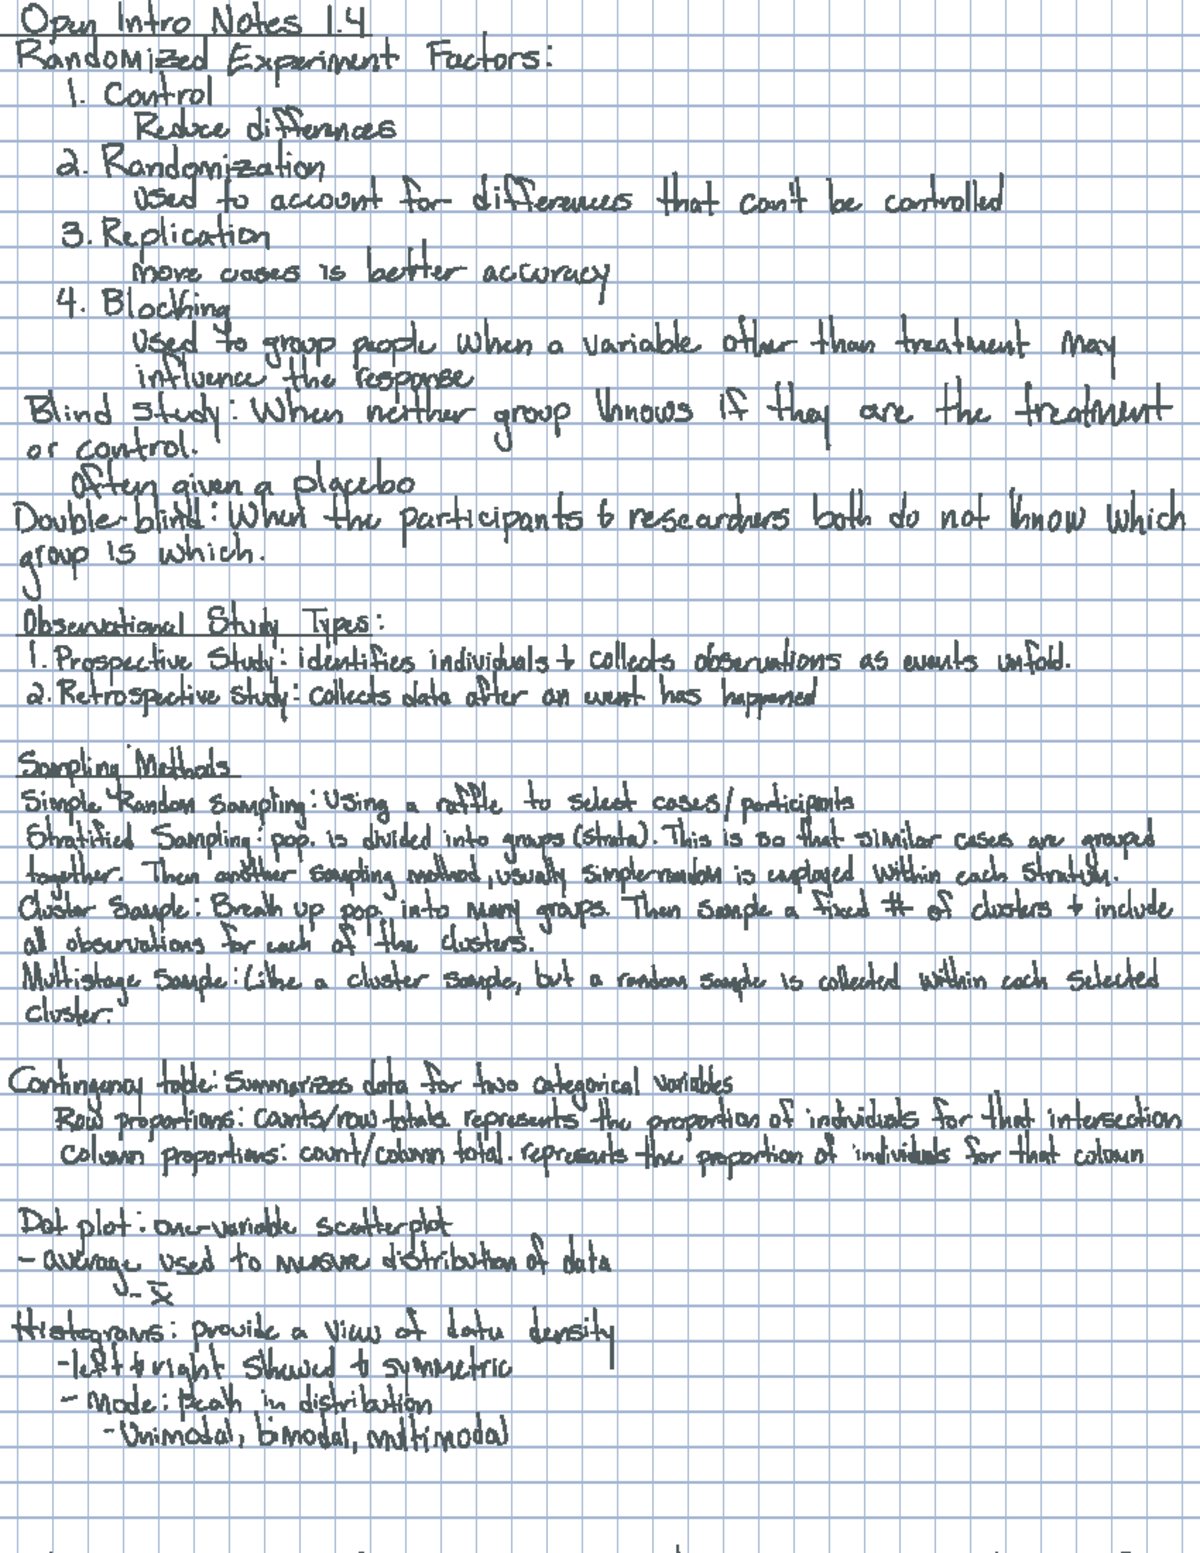 Open Intro Notes 1.4
Randomized Experiment Factors:
1. Control
Reduce differences
2. Randomization
used to account for differences that can't be controlled
3. Replication
more cases is better accuracy
4. Blocking
used to group people when a variable other than treatment may
influence the response
Blind study: When neither group knows if they are the treatment
or control.
often given a placebo
Double-blind: When the participants & researchers both do not know which
group is which.
Observational Study Types:
1. Prospective Study: identifies individuals & collects observations as events unfold.
2. Retrospective Study: collects data after an event has happened
Sampling Methods
Simple Random Sampling: Using a raffle to select cases/participants
Stratified Sampling: pop. is divided into groups (strata). This is so that similar cases are grouped
together. Then another sampling method, usually simple random is employed within each stratum.
Cluster Sample: Break up pop. into many groups. Then sample a fixed # of clusters & include
all observations for each of the clusters.
Multistage Sample: Like a cluster sample, but a random sample is collected within each selected
cluster.
Contingency table: Summarizes data for two categorical variables
Row proportions: counts/row totals. represents the proportion of individuals for that intersection
Column proportions: count/column total. represents the proportion of individuals for that column
Dot plot: one-variable scatterplot
- average used to measure distribution of data
- x̄
Histograms: provide a view of data density
- left & right skewed & symmetric
- Mode: Peak in distribution
- Unimodal, bimodal, multimodal